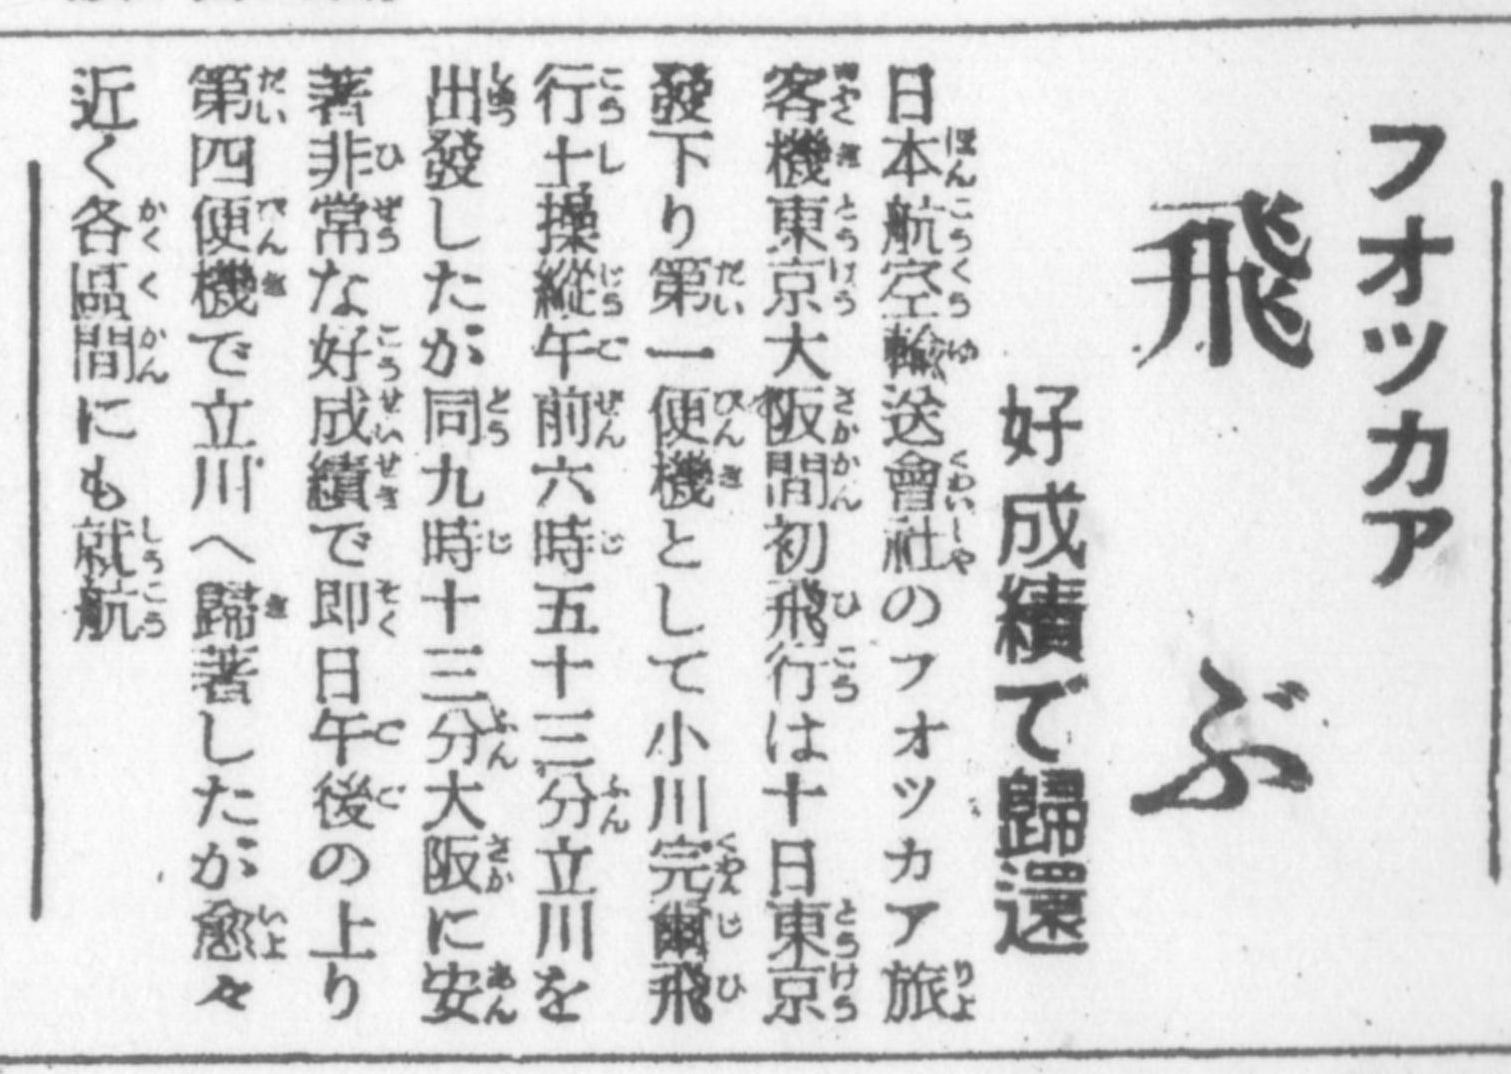 フオツカア
飛ぶ
好成績で歸還
日本航空輸送會社のフオツカア旅
客機東京大阪間初飛行は十日東京
發下り第一便機として小川完爾飛
行士操縱午前六時五十三分立川を
出發したが同九時十三分大阪に安
著非常な好成績で即日午後の上り
第四便機で立川へ歸著したが愈々
近く各區間にも就航